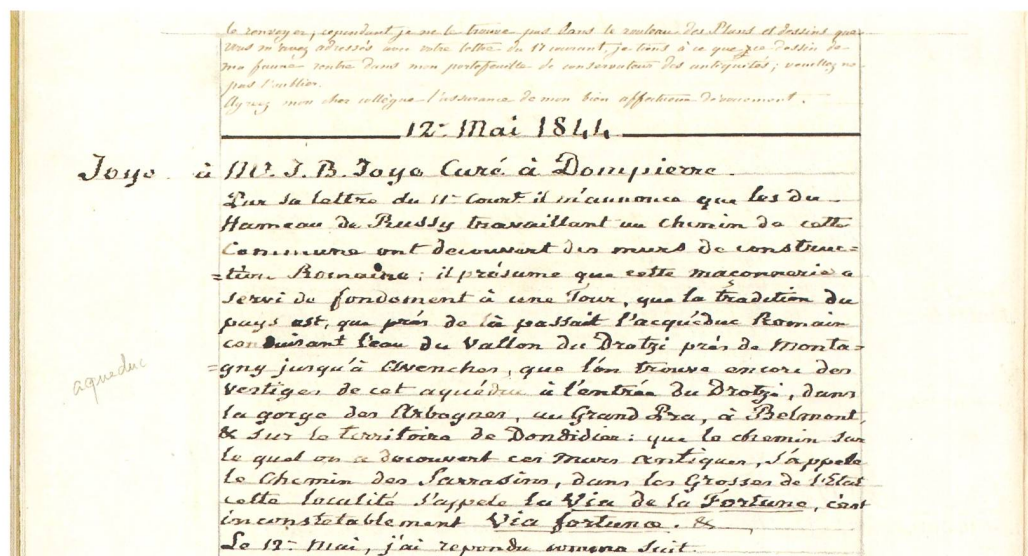 le renvoyer, cependant je ne le trouve pas dans le rouleau des Plans et dessins que
vous m'avez adressés avec votre lettre du 17 courant, je tiens à ce que ce dessin de
ma faune rentre dans mon portefeuille de conservateur des antiquités; veuillez ne
pas l'oublier.
Agréez mon cher collègue l'assurance de mon bien affectueux dévouement.
12. Mai 1844
Joye à Mr. J. B. Joye Curé à Dompierre.
Par sa lettre du 11 Court il m'annonce que les du
Hameau de Russy travaillant au chemin de cette
Commune ont decouvert des murs de construc=
=tion Romaine; il présume que cette maçonnerie a
servi de fondement à une Tour, que la tradition du
pays est, que près de là passait l'acquéduc Romain
conduisant l'eau du Vallon du Drotzi près de Monta=
=gny jusqu'à Avenches, que l'on trouve encore des
aqueduc
vestiges de cet aquéduc à l'entrée du Drotzi, dans
la gorge des Arbognes, au Grand Pra, à Belmont
& sur le territoire de Dondidier: que le chemin sur
le quel on a decouvert ces murs antiques, s'appele
le Chemin des Sarrasins, dans les Grosses de l'Etat
cette localité s'appele la Via de la Fortune, c'est
incontestablement Via fortunæ. &
Le 12. Mai, j'ai repondu comme suit.